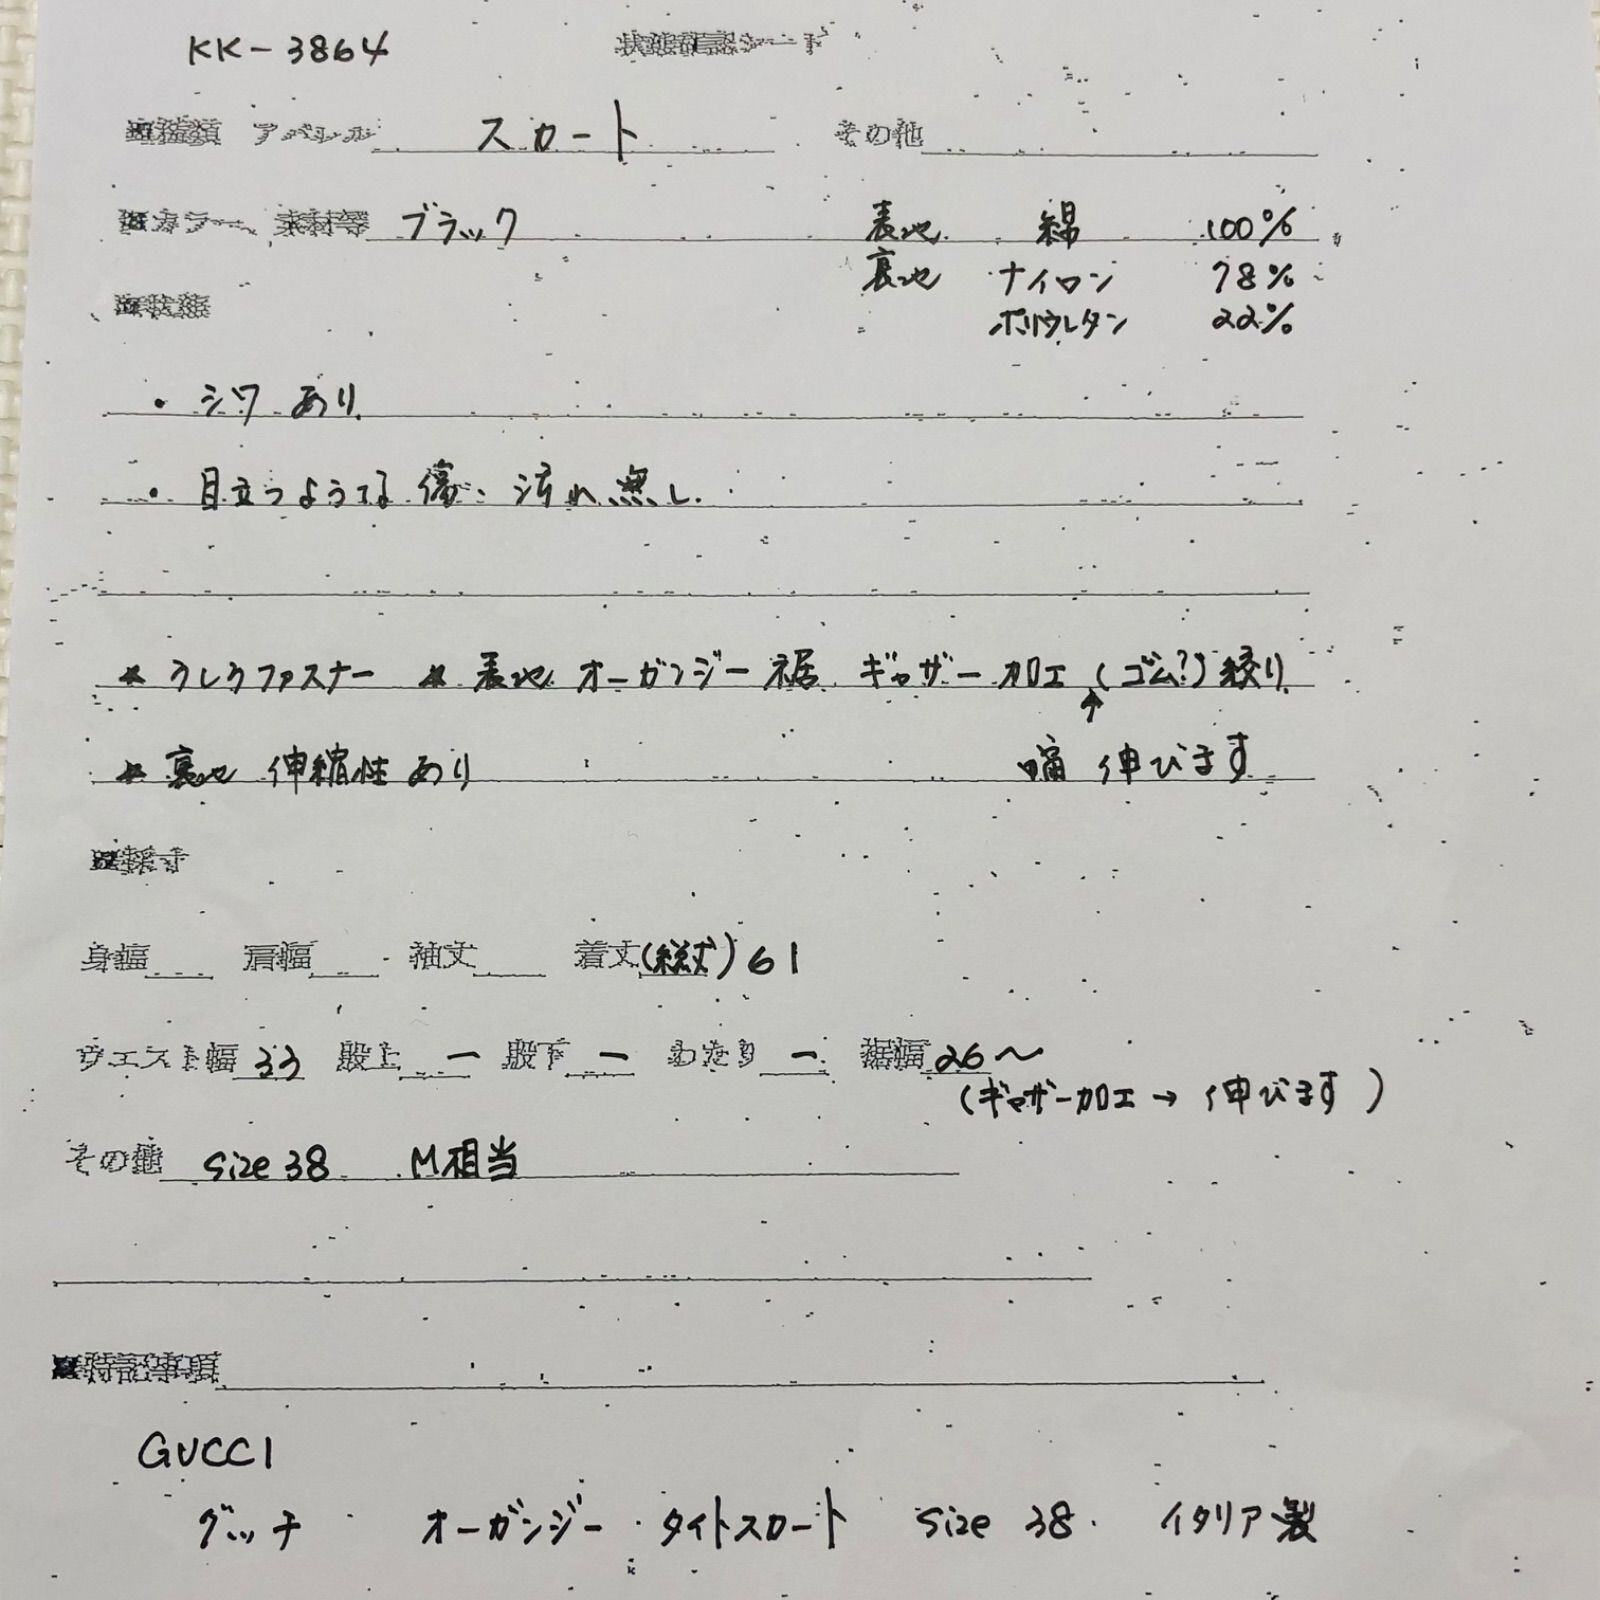 KK-3864 状態確認シート
■種類 アパレル スカート その他
■カラー、素材等 ブラック 表地 綿 100%
裏地 ナイロン 78%
ポリウレタン 22%
■状態
・シワあり
・目立つような傷、汚れ無し
* うしろファスナー * 表地 オーガンジー裾 ギャザー加工 (ゴム?)絞り
* 裏地 伸縮性あり ↑幅 伸びます
■採寸
身幅 肩幅 袖丈 着丈(総丈)61
ウエスト幅 33 股上 ー 股下 ー わたり ー 裾幅 26〜
(ギャザー加工→伸びます)
その他 size 38 M相当
■特記事項
GUCCI
グッチ オーガンジー タイトスカート size 38 イタリア製